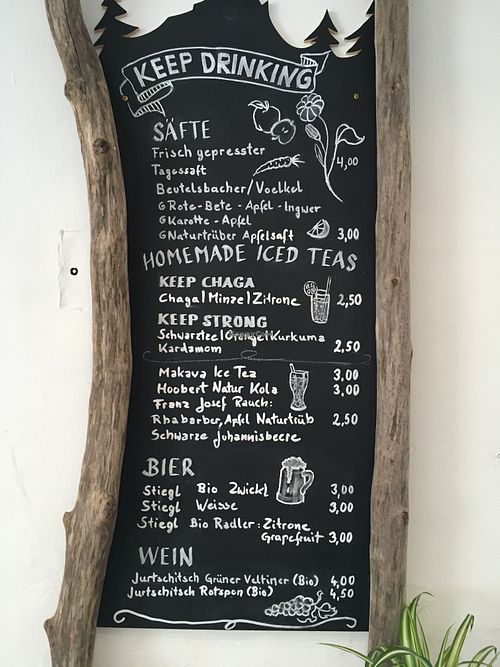 KEEP DRINKING
SÄFTE
Frisch gepresster
Tagessaft 4,00
Beutelsbacher/Voelkel
GRote-Bete-Apfel-Ingwer
GKarotte-Apfel
GNaturtrüber Apfelsaft 3,00
HOMEMADE ICED TEAS
KEEP CHAGA
Chaga|Minze|Zitrone 2,50
KEEP STRONG
Schwarztee|Orange|Kurkuma
Kardamom 2,50
Makava Ice Tea 3,00
Hoobert Natur Kola 3,00
Franz Josef Rauch:
Rhabarber, Apfel Naturtrüb 2,50
Schwarze Johannisbeere
BIER
Stiegl Bio Zwickl 3,00
Stiegl Weisse 3,00
Stiegl Bio Radler: Zitrone
Grapefruit 3,00
WEIN
Jurtschitsch Grüner Veltiner (Bio) 4,00
Jurtschitsch Rotspon (Bio) 4,50